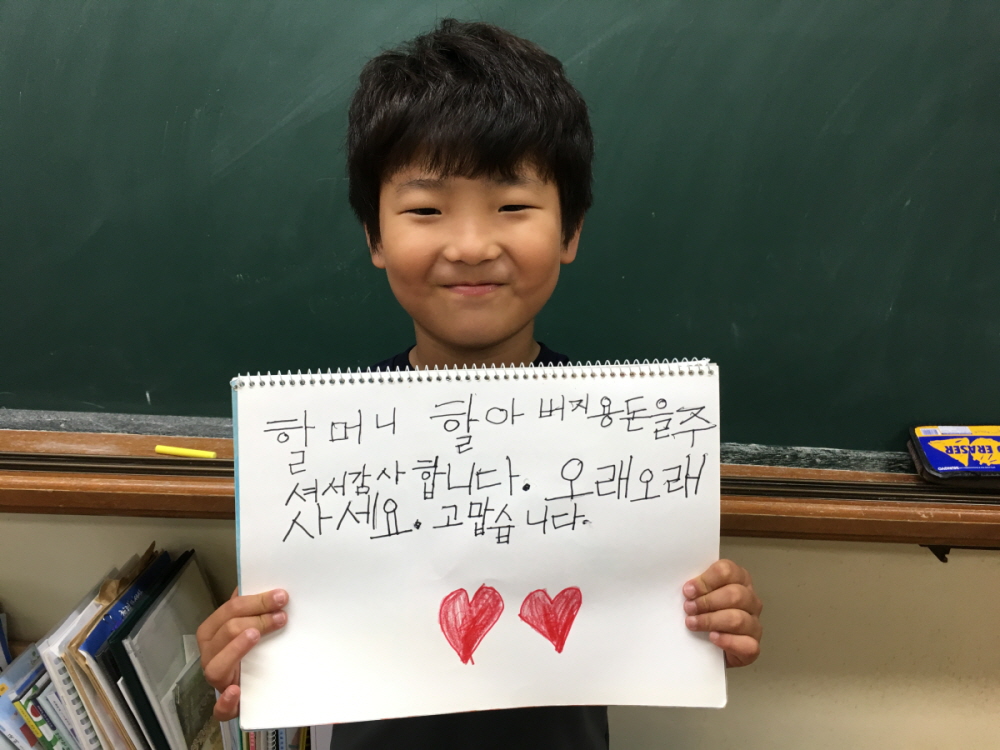 할머니 할아버지용돈을주
셔서감사합니다. 오래오래
사세요. 고맙습니다.
ERASER